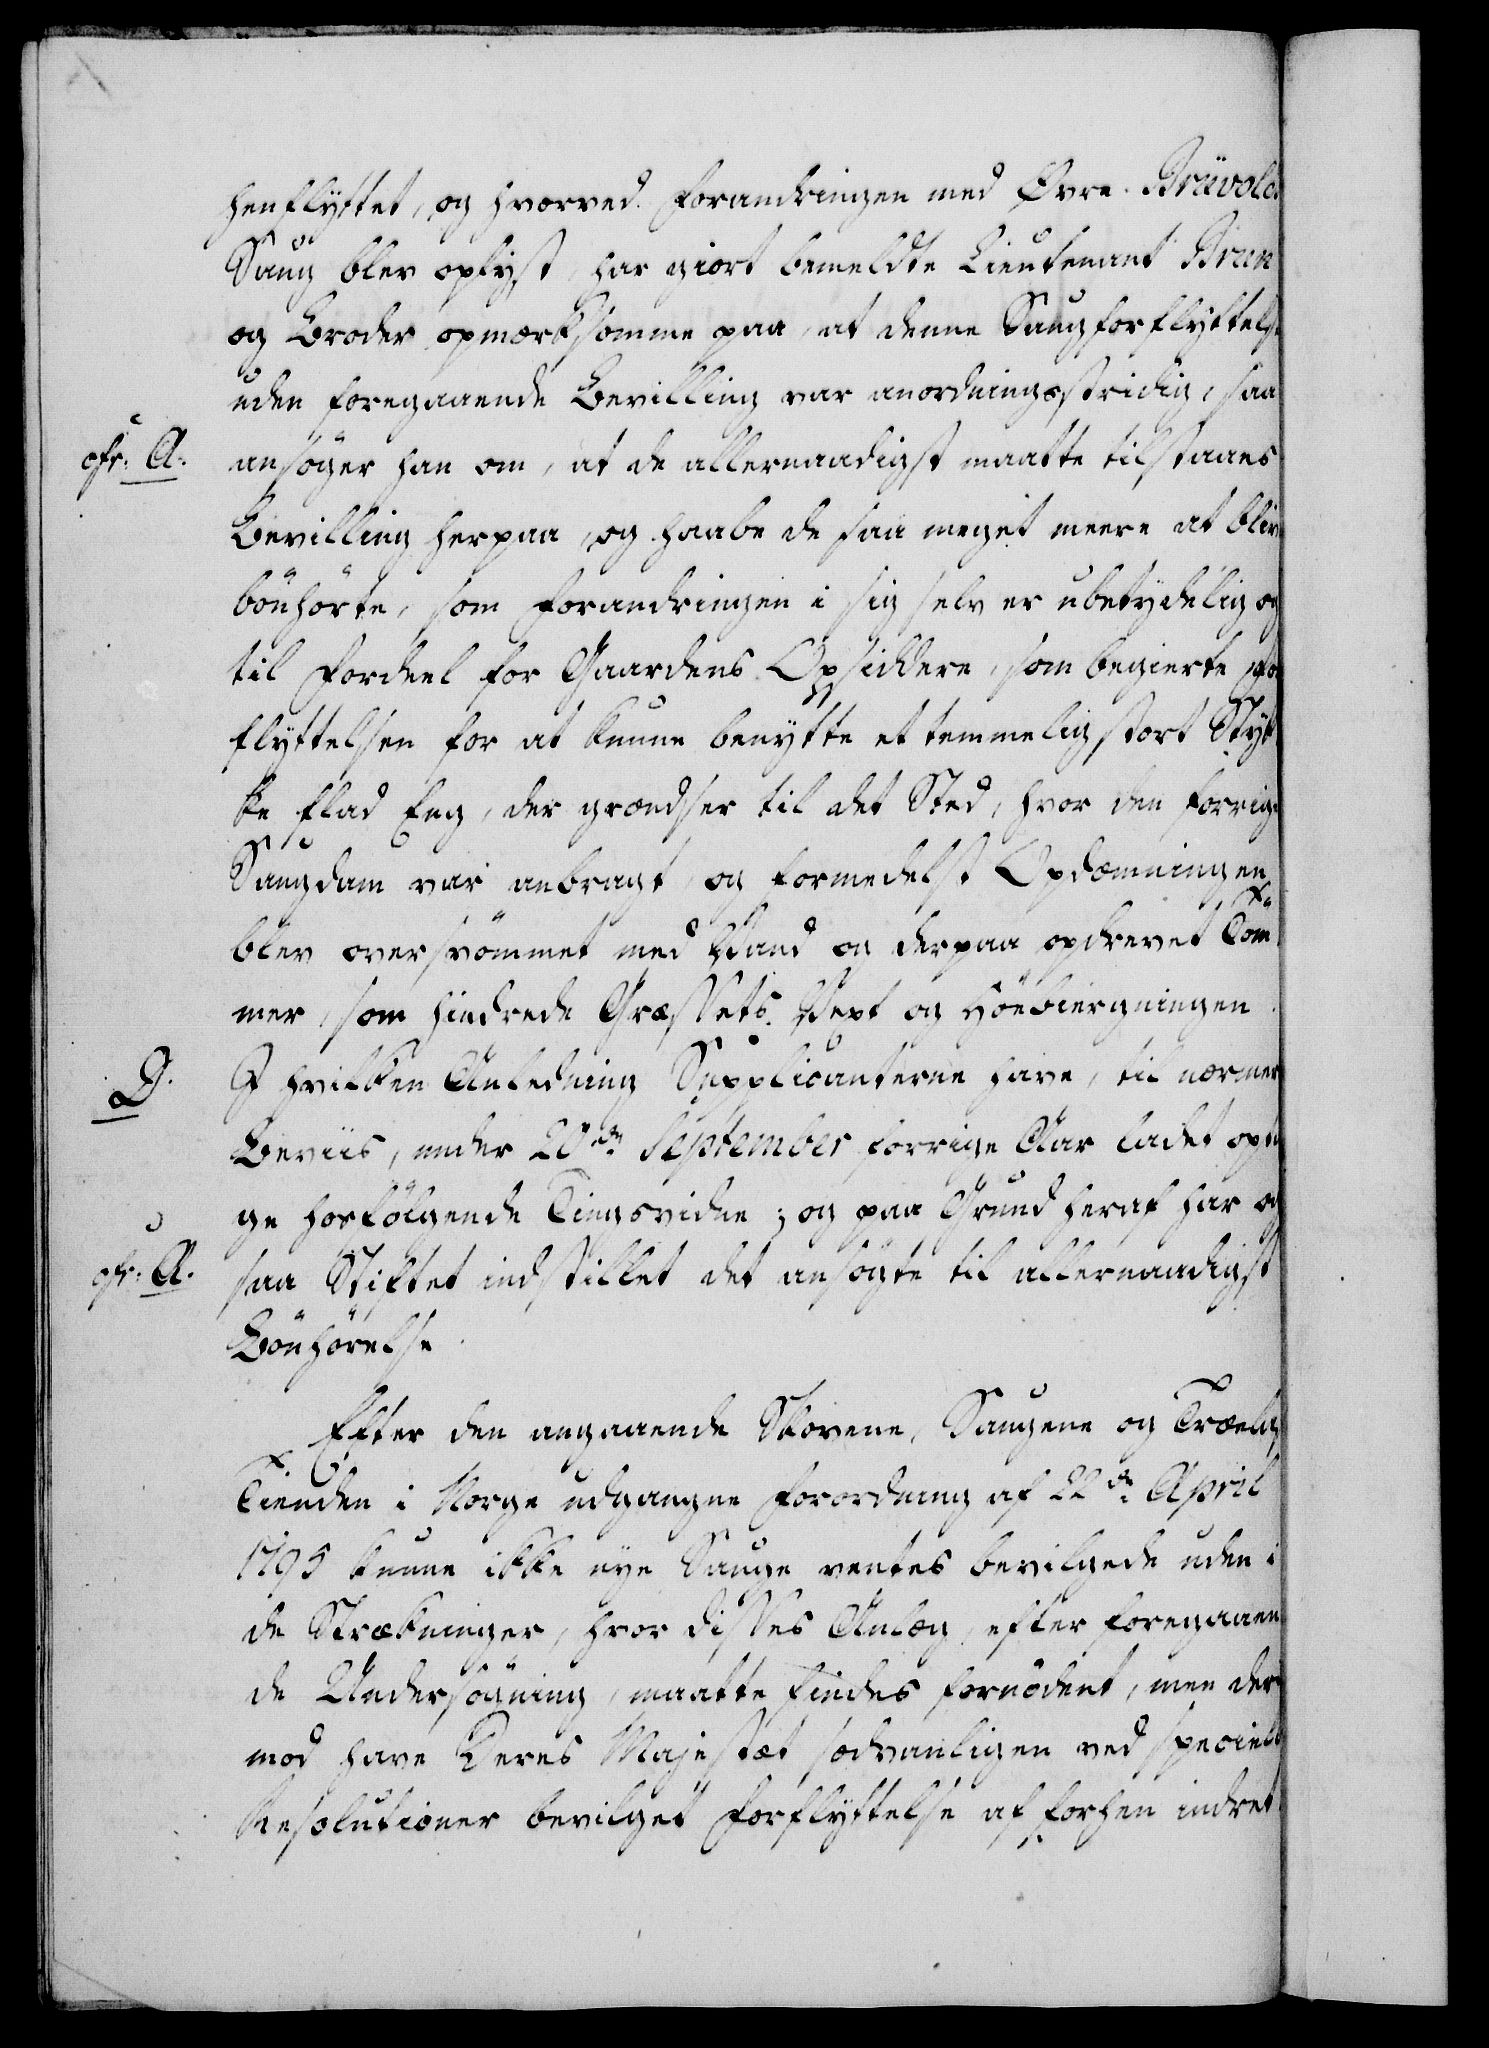 henflyttet, og hvorved Forandringen med Øvre Brüvold
Saug blev oplyst, har giort bemeldte Lieutenant Brun
og Broder opmærksomme paa, at denne Saugforflyttelse
uden foregaaende Bevilling var anordningsstridig, saa
cfr. A. ansøger han om, at de allernaadigst maatte tilstaaes
Bevilling herpaa, og haabe de saa meget meere at blive
bönhörte, som Forandringen i sig selv er ubetydelig og
til Fordeel for Gaardens Opsiddere, som begierte For
flyttelsen for at kunne benytte et temmelig stort Styk
ke flad Eng, der grændser til det Sted, hvor den forrige
Saugdam var anbragt, og formedelst Opdæmningen
blev oversvömmet med Vand og derpaa opdrevet Töm
mer, som hindrede Græssets Vext og Höebiergningen.
D. I hvilken Anledning Supplicanterne have, til nærmere
Beviis, under 20de September forrige Aar ladet opta
ge hosfölgende Tingsvidne; og paa Grund heraf har og
cfr. A. saa Stiftet indstillet det ansögte til allernaadigst
Bönhörelse.
Efter den angaaende Skovene, Saugene og Trælast
Tienden i Norge udgangne Forordning af 22de April
1795 kunne ikke nye Sauge ventes bevilgede uden i
de Strækninger, hvor disses Anlæg, efter foregaaen
de Undersögning, maatte findes fornödent, men der
mod have Deres Majestæt sædvanligen ved specielle
Resolutioner bevilget Forflyttelse af forhen indret